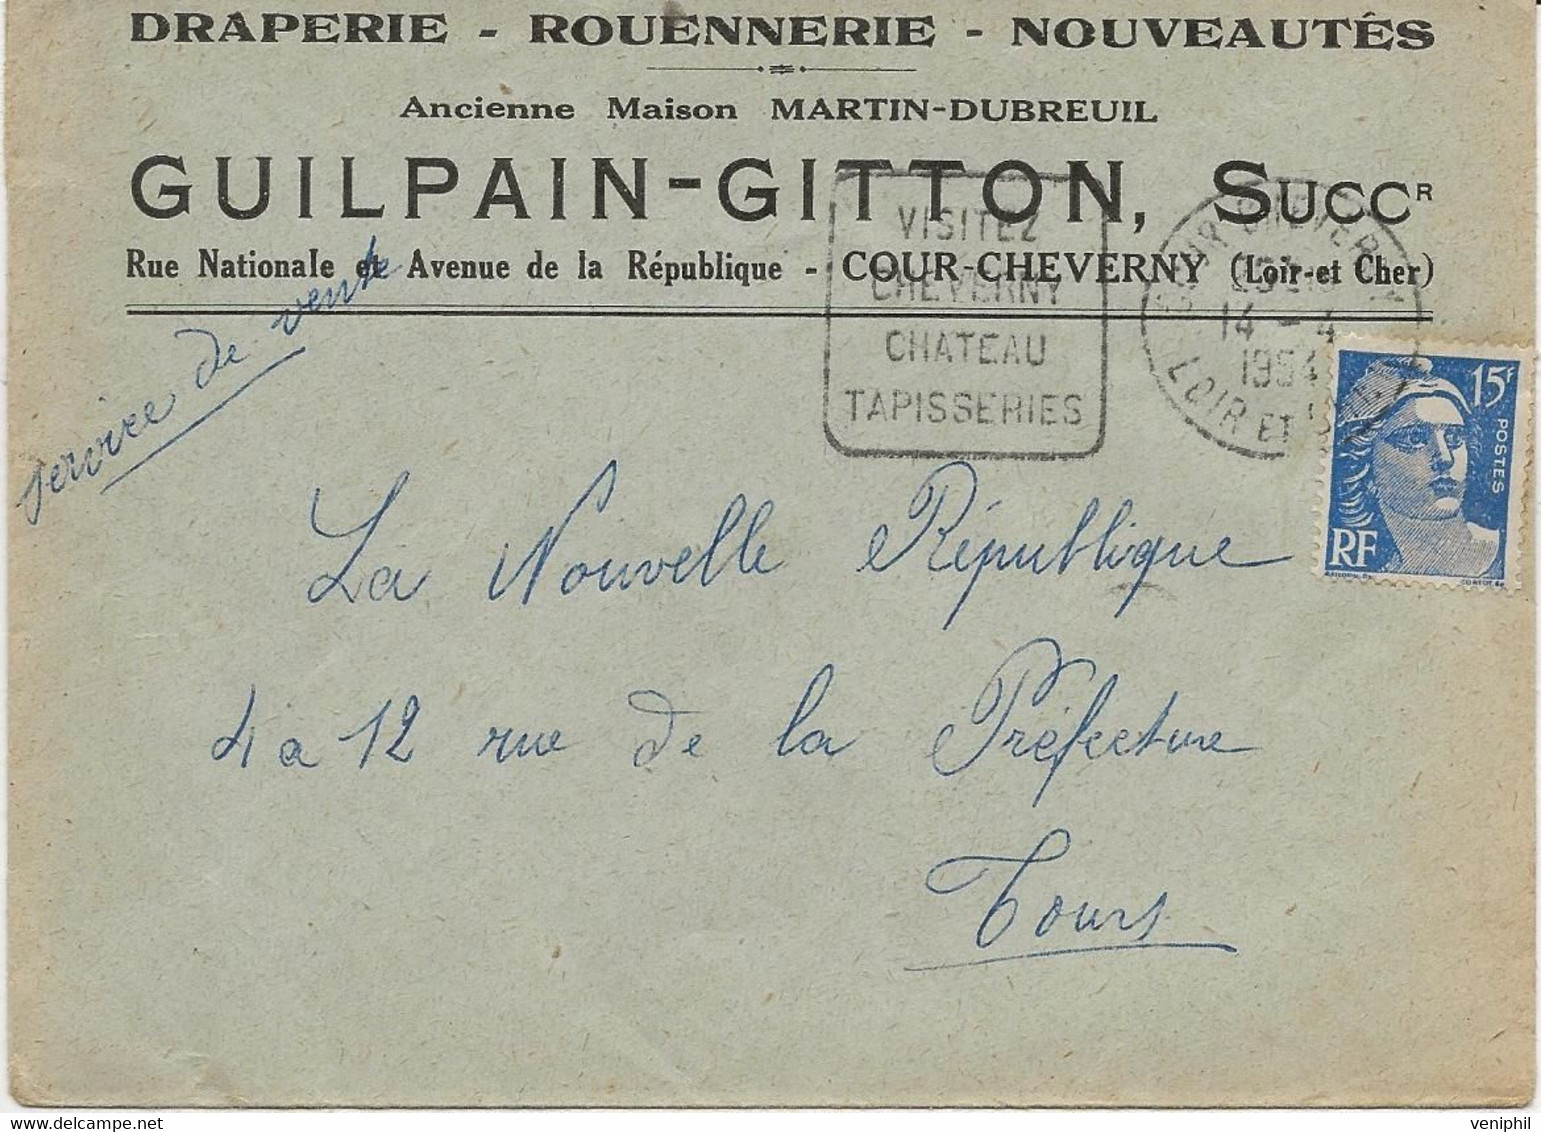 DRAPERIE - ROUENNERIE - NOUVEAUTÉS
Ancienne Maison MARTIN-DUBREUIL
GUILPAIN-GITTON, SUCCR
Rue Nationale et Avenue de la République - COUR-CHEVERNY (Loir-et Cher)
service de vente
VISITEZ
CHEVERNY
CHATEAU
TAPISSERIES
COUR-CHEVERNY
14 - 4
1954
LOIR ET CHER
15F
POSTES
RF
La Nouvelle République
4 a 12 rue de la Préfecture
Tours
veniphil